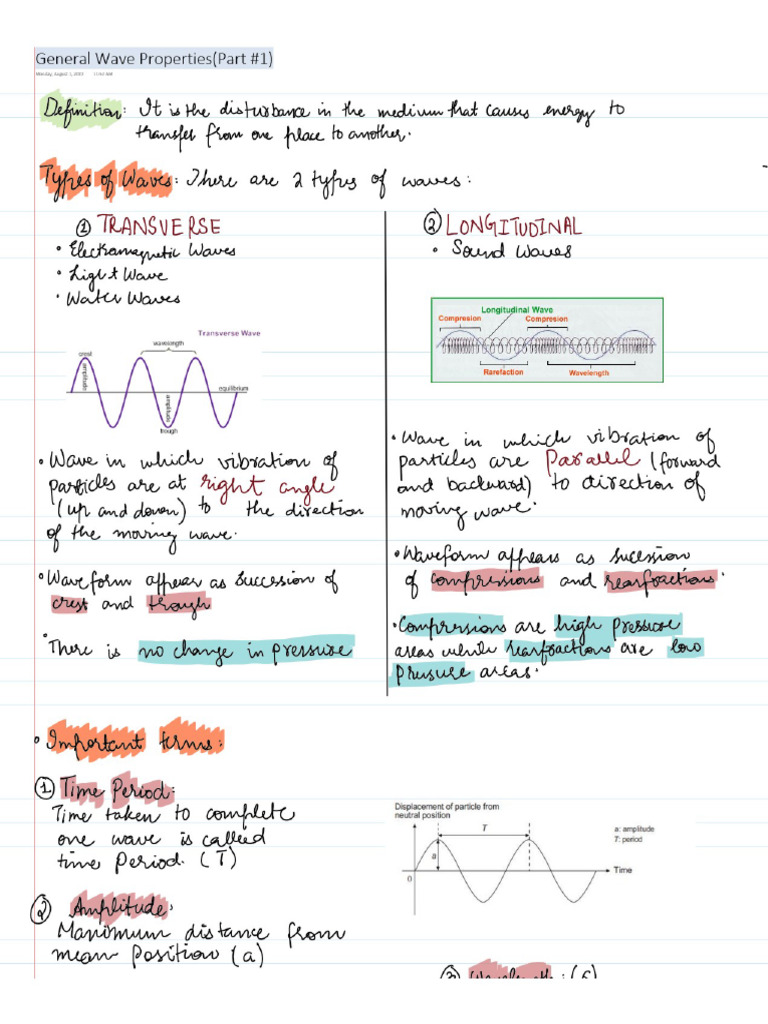 General Wave Properties(Part #1)
Monday, August 1, 2022 11:53 AM
Definition: It is the disturbance in the medium that causes energy to
transfer from one place to another.
Types of Waves: There are 2 types of waves:
① TRANSVERSE
• Electromagnetic Waves
• Light Wave
• Water Waves
Transverse Wave
wavelength
crest
amplitude
equilibrium
amplitude
trough
• Wave in which vibration of
particles are at right angle
(up and down) to the direction
of the moving wave.
• Waveform appear as succession of
crest and trough
• There is no change in pressure
② LONGITUDINAL
• Sound Waves
Longitudinal Wave
Compresion Compresion
Rarefaction Wavelength
• Wave in which vibration of
particles are Parallel (forward
and backward) to direction of
moving wave.
• Waveform appears as sucession
of compressions and rearfractions.
• Compressions are high pressure
areas while rearfractions are low
pressure areas.
• Important terms:
① Time Period:
Time taken to complete
one wave is called
time Period. (T)
② Amplitude:
Maximum distance from
mean position (a)
Displacement of particle from
neutral position
T
a: amplitude
T: period
a
0
Time